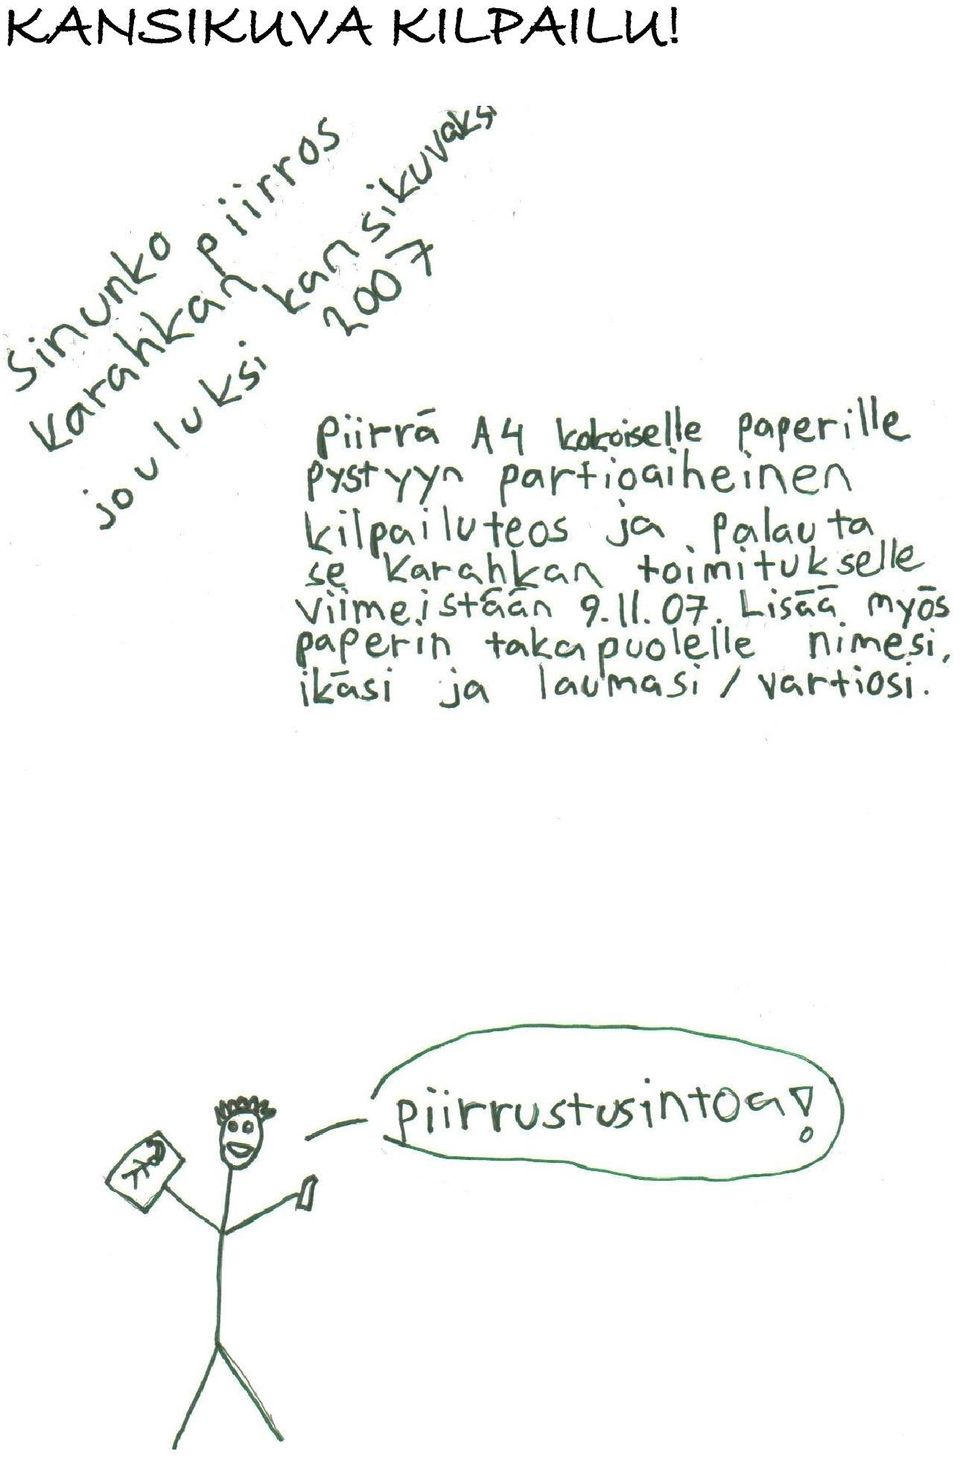 KANSIKUVA KILPAILU!
Sinunko piirros
Karahkan kansikuvaksi
jouluksi 2007
Piirrä A4 kokoiselle paperille
pystyyn partioaiheinen
kilpailuteos ja palauta
se Karahkan toimitukselle
viimeistään 9.11.07. Lisää myös
paperin takapuolelle nimesi,
ikäsi ja laumasi / vartiosi.
piirrustusintoa!